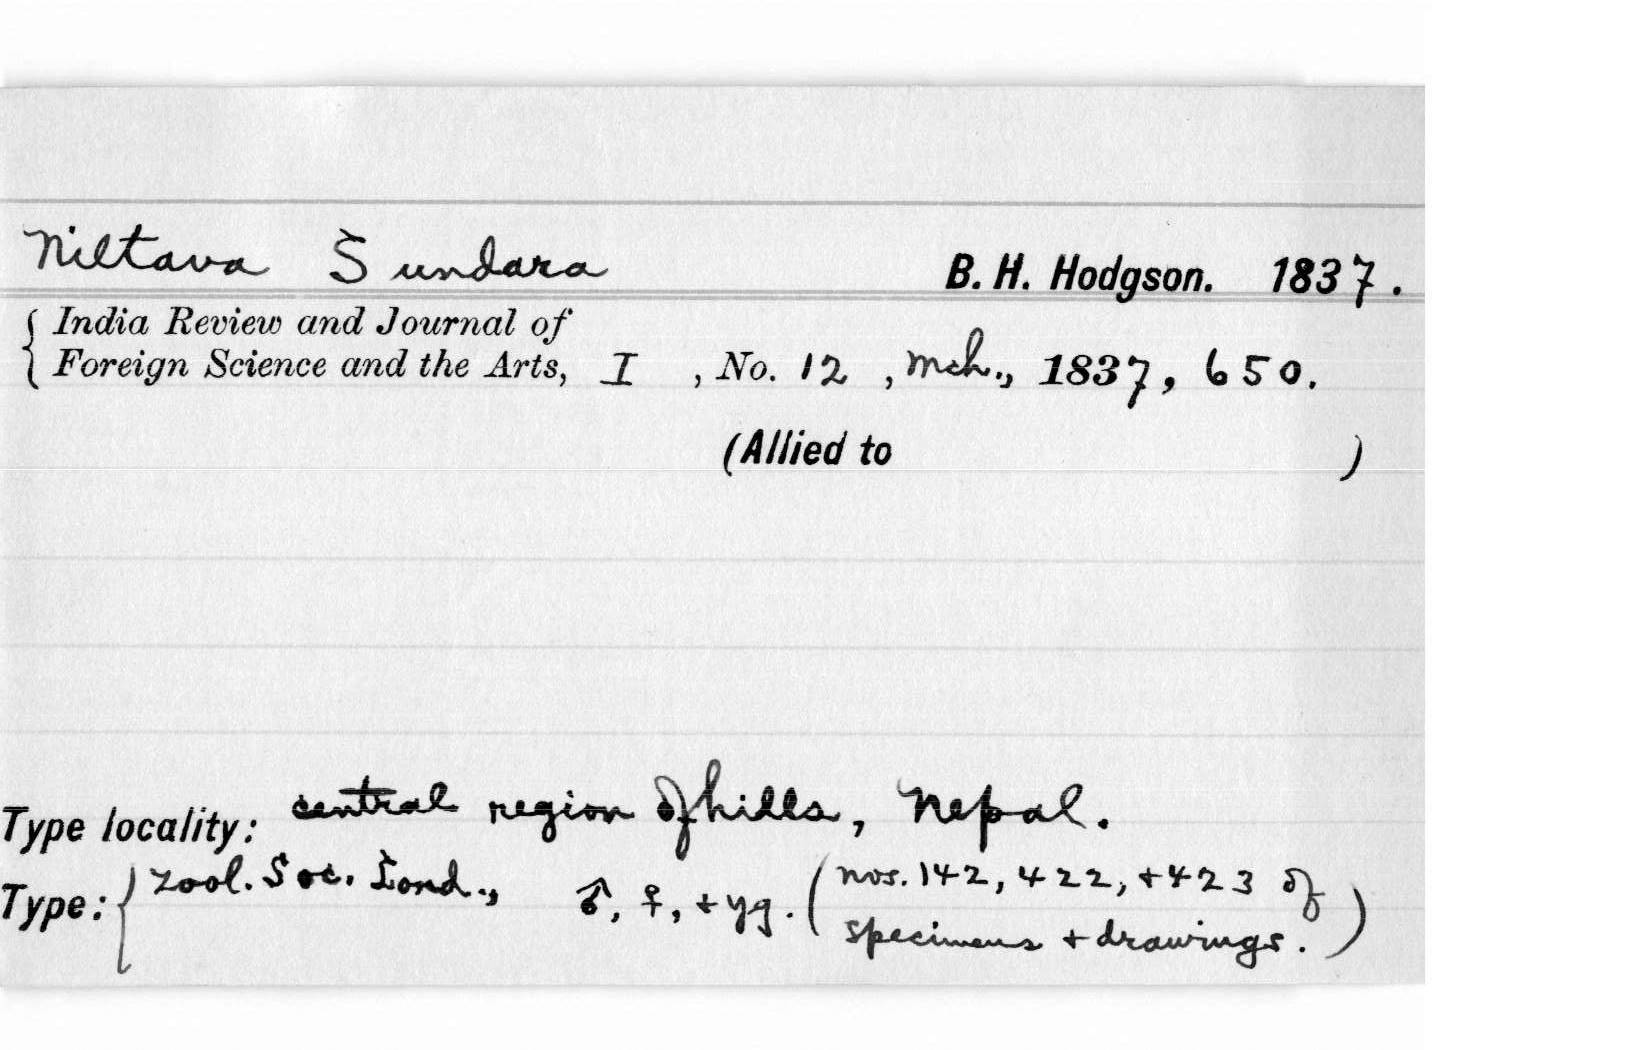 Niltava Sundara B. H. Hodgson. 1837.
India Review and Journal of
Foreign Science and the Arts, I , No. 12 , Mch., 1837, 650.
(Allied to )
Type locality: central region of hills, Nepal.
Type: Zool. Soc. Lond., ♂, ♀, + yg. (nos. 142, 422, + 423 of
specimens + drawings.)